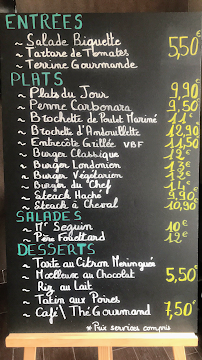 ENTRÉES
~ Salade Biquette
~ Tartare de Tomates 5,50€
~ Terrine Gourmande
PLATS
~ Plats du Jour 9,90€
~ Penne Carbonara 9,50€
~ Brochette de Poulet Mariné 11€
~ Brochette d'Andouillette 12,90
~ Entrecôte Grillée VBF 11,50
~ Burger Classique 12€
~ Burger Londonien
~ Burger Végétarien
~ Burger du Chef 14€
~ Steack Haché 9,90€
~ Steack à Cheval 10,90€
SALADES
~ Mr Seguin 10€
~ Père Fouettard 12€
DESSERTS
~ Tarte au Citron Meringuée
~ Moelleux au Chocolat 5,50
~ Riz au Lait
~ Tatin aux Poires
~ Café \ Thé Gourmand 7,50€
* Prix services compris